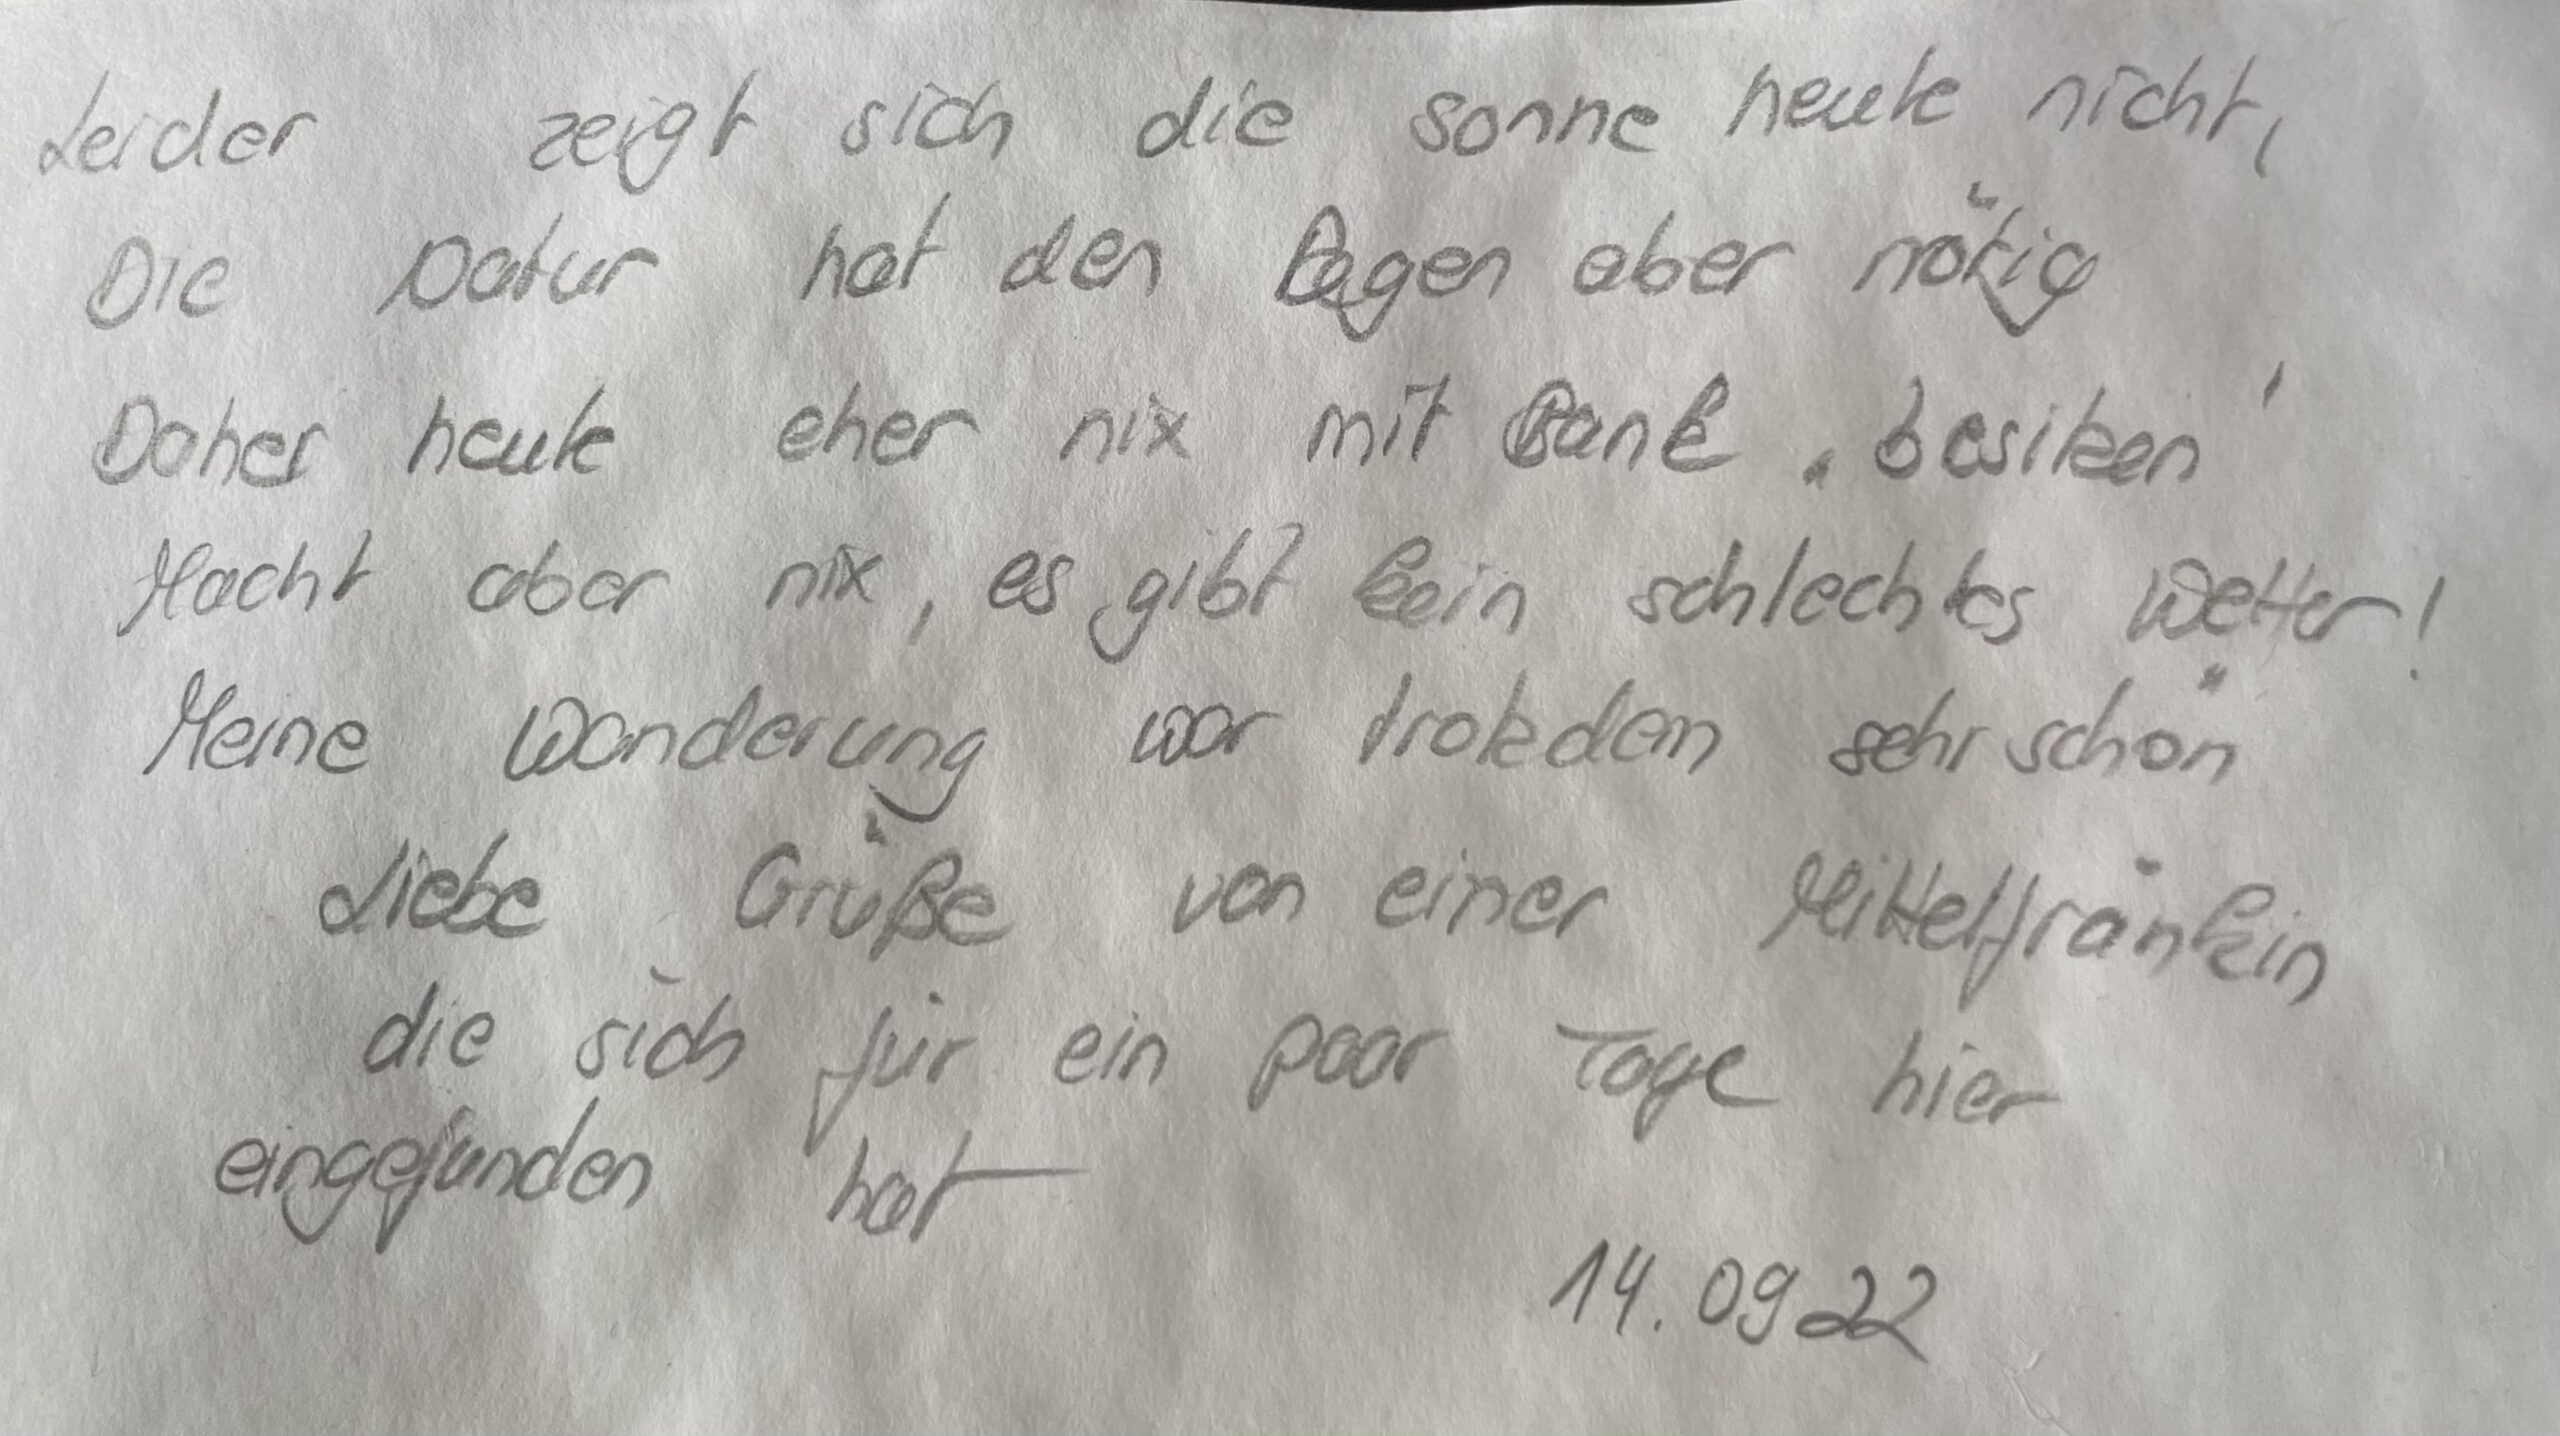 Leider zeigt sich die sonne heute nicht,
Die Natur hat den Regen aber nötig
Daher heute eher nix mit Bank "besitzen"
Macht aber nix, es gibt kein schlechtes Wetter!
Meine Wanderung war trotzdem sehr schön
Liebe Grüße von einer Mittelfränkin
die sich für ein paar Tage hier
eingefunden hat
14.09 22